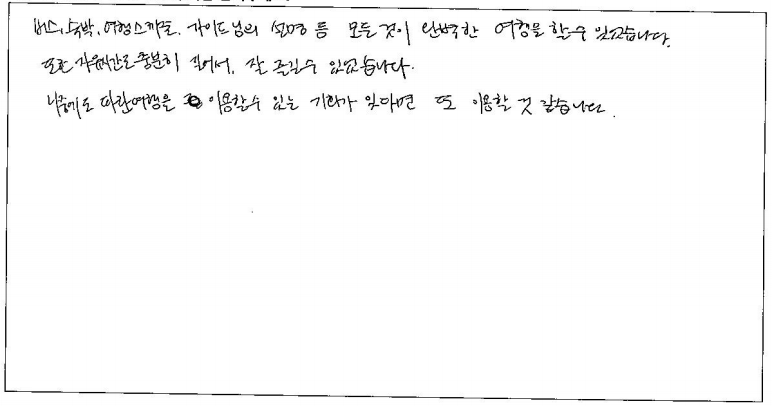 버스, 숙박, 여행스케줄, 가이드님의 설명 등 모든 것이 완벽한 여행을 할수 있었습니다.
또한 자유시간도 충분히 있어서, 잘 즐길수 있었습니다.
나중에도 파란여행을 이용할수 있는 기회가 있다면 또 이용할 것 같습니다.